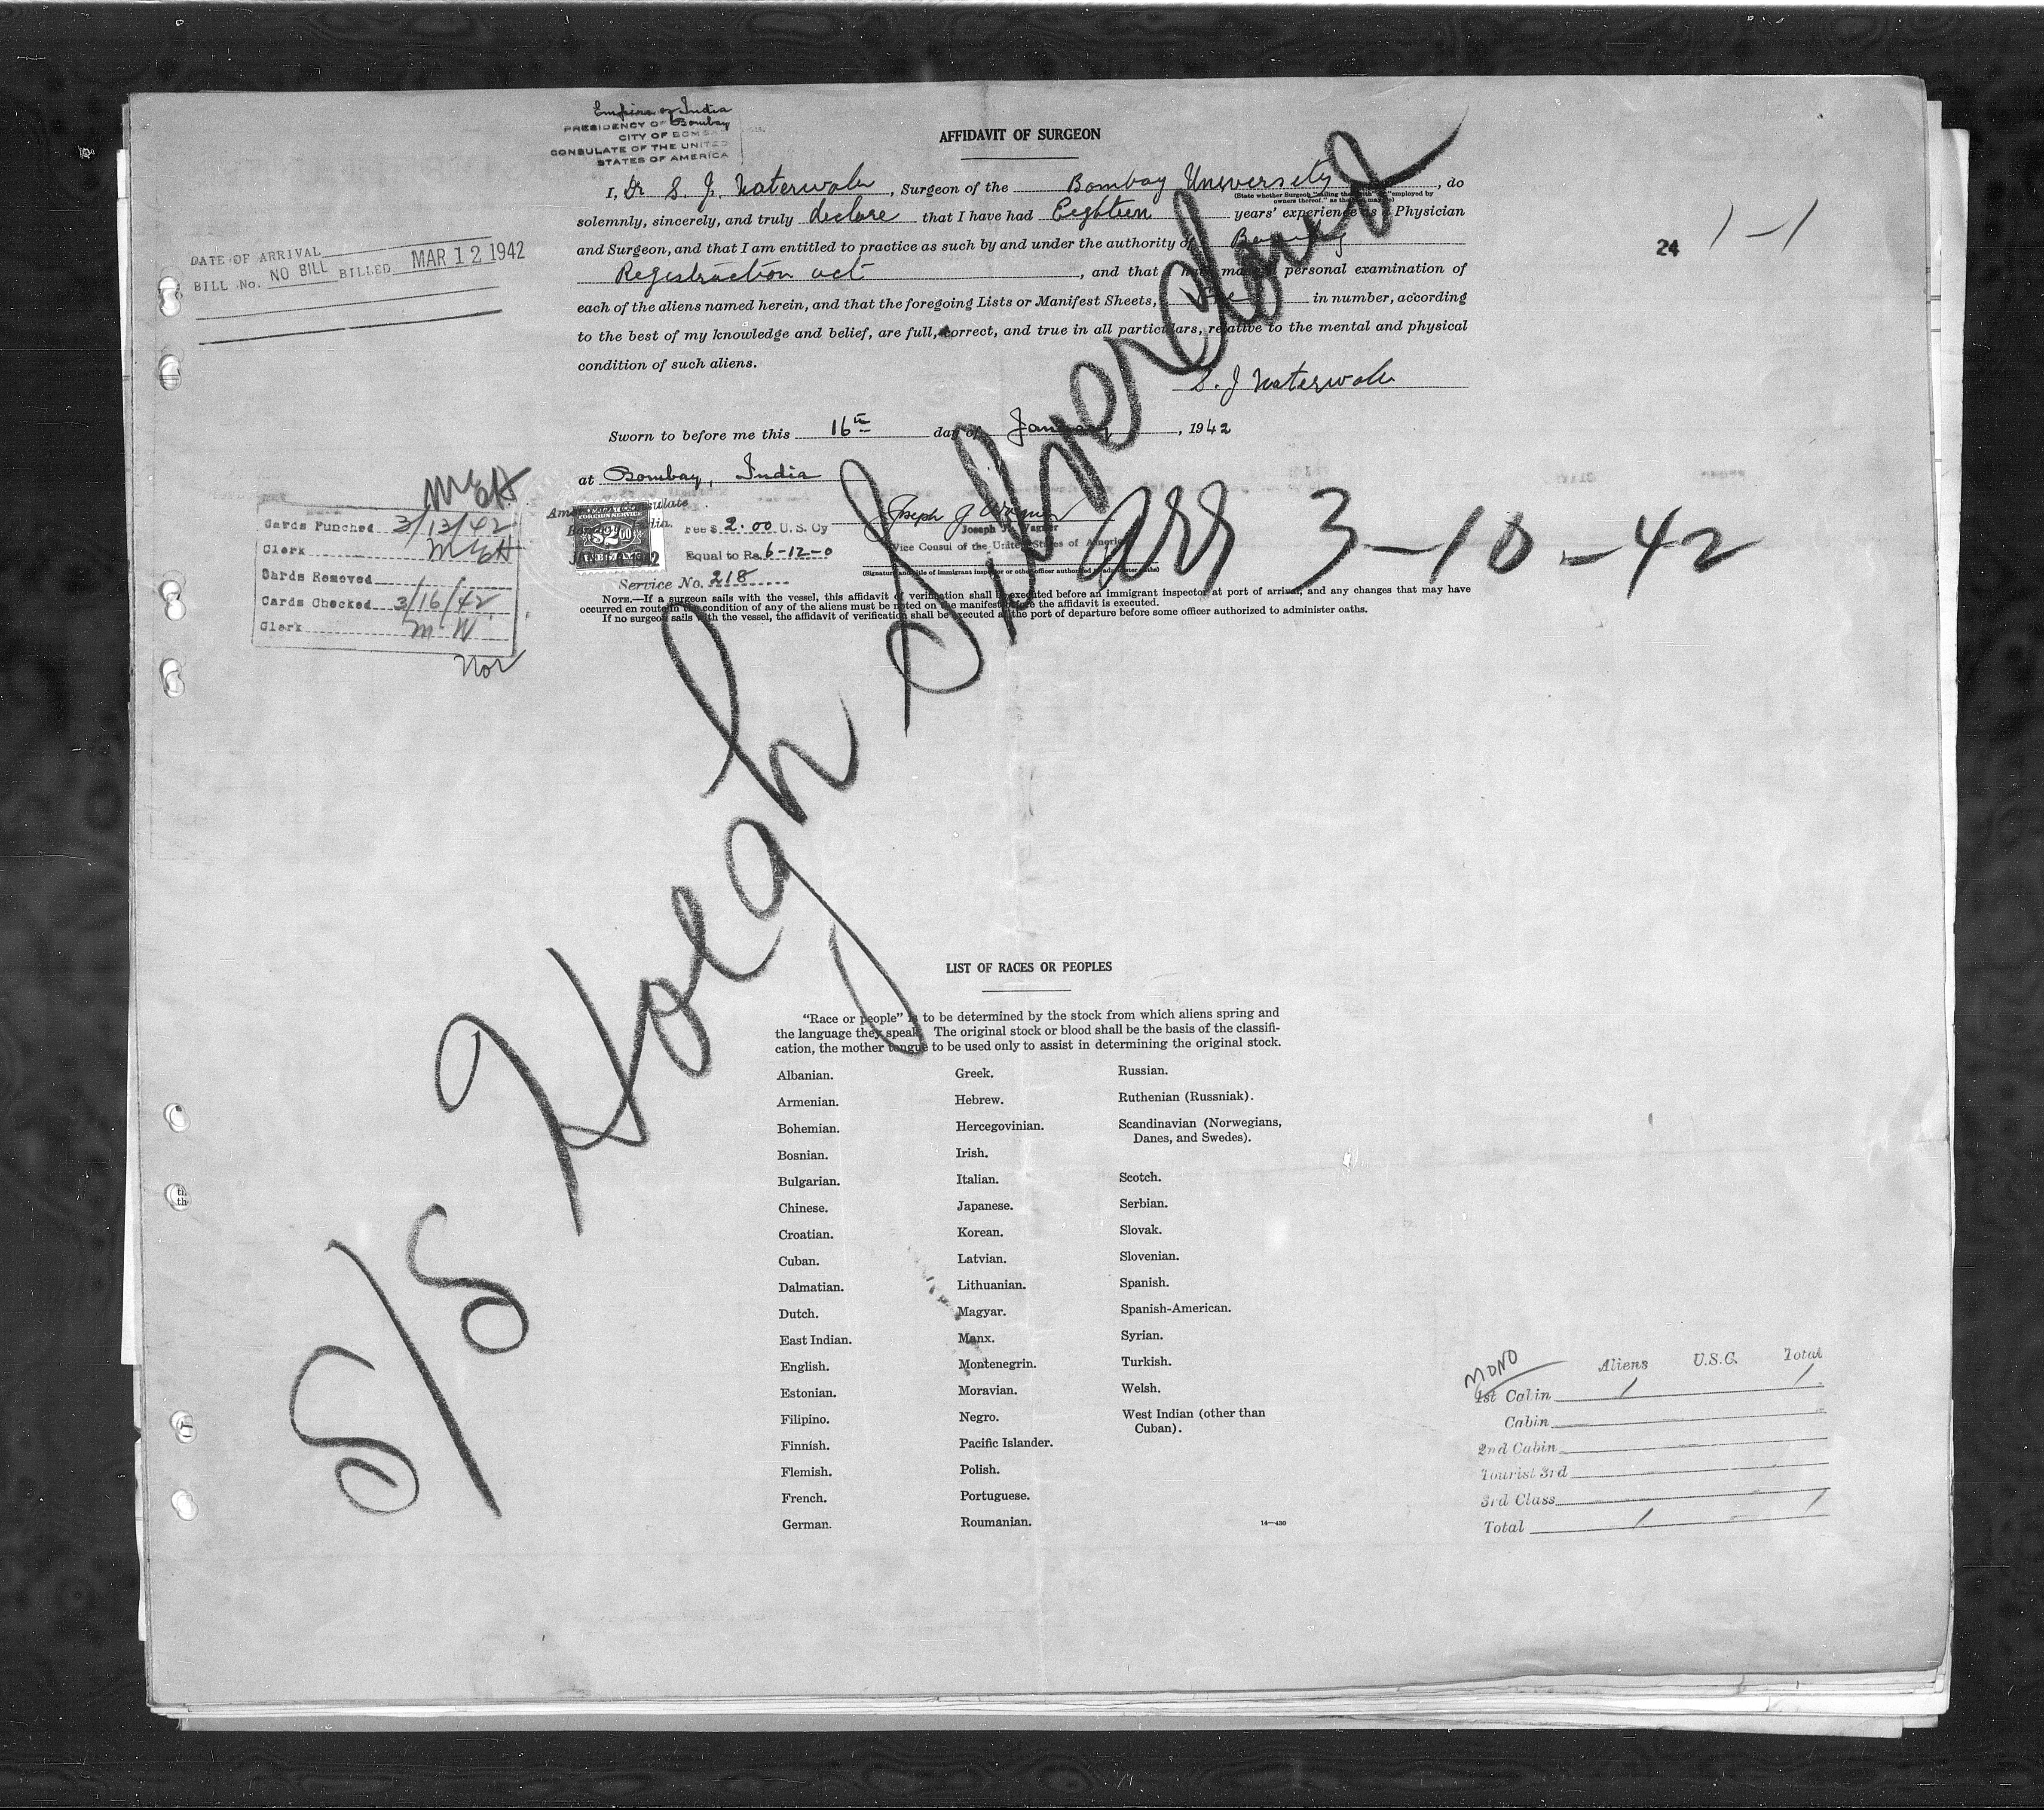 Empire of India
PRESIDENCY OF Bombay
CITY OF BOMBA
CONSULATE OF THE UNITED
STATES OF AMERICA
AFFIDAVIT OF SURGEON
I, Dr S. J. Naterwala, Surgeon of the Bombay University, do
(State whether Surgeon "sailing therewith" or "employed by owners thereof," as the case may be)
solemnly, sincerely, and truly declare that I have had Eighteen years' experience as a Physician
and Surgeon, and that I am entitled to practice as such by and under the authority of Bombay
Registraction act, and that I have made a personal examination of
each of the aliens named herein, and that the foregoing Lists or Manifest Sheets, in number, according
to the best of my knowledge and belief, are full, correct, and true in all particulars, relative to the mental and physical
condition of such aliens.
S. J Naterwala
Sworn to before me this 16th day of January, 1942
at Bombay, India
24 1-1
DATE OF ARRIVAL
BILL No. NO BILL BILLED MAR 12 1942
MEH
Cards Punched 3/13/42
Clerk MEH
Cards Removed
Cards Checked 3/16/42
Clerk M W
Nor
American Consulate
Bombay, India.
FOREIGN SERVICE
$2.00
Fee $ 2.00 U.S. Cy
Equal to Rs. 6-12-0
Service No. 218
Joseph J. Wagner
Joseph J. Wagner
Vice Consul of the United States of America
(Signature and title of immigrant inspector or other officer authorized to administer oaths)
arr 3-10-42
NOTE.—If a surgeon sails with the vessel, this affidavit of verification shall be executed before an immigrant inspector at port of arrival, and any changes that may have
occurred en route in the condition of any of the aliens must be noted on the manifest before the affidavit is executed.
If no surgeon sails with the vessel, the affidavit of verification shall be executed at the port of departure before some officer authorized to administer oaths.
S/S Hoegh Silvercloud
LIST OF RACES OR PEOPLES
"Race or people" is to be determined by the stock from which aliens spring and
the language they speak. The original stock or blood shall be the basis of the classifi-
cation, the mother tongue to be used only to assist in determining the original stock.
Albanian.
Armenian.
Bohemian.
Bosnian.
Bulgarian.
Chinese.
Croatian.
Cuban.
Dalmatian.
Dutch.
East Indian.
English.
Estonian.
Filipino.
Finnish.
Flemish.
French.
German.
Greek.
Hebrew.
Hercegovinian.
Irish.
Italian.
Japanese.
Korean.
Latvian.
Lithuanian.
Magyar.
Manx.
Montenegrin.
Moravian.
Negro.
Pacific Islander.
Polish.
Portuguese.
Roumanian.
Russian.
Ruthenian (Russniak).
Scandinavian (Norwegians,
Danes, and Swedes).
Scotch.
Serbian.
Slovak.
Slovenian.
Spanish.
Spanish-American.
Syrian.
Turkish.
Welsh.
West Indian (other than
Cuban).
14—430
MONO
Aliens U.S.C. Total
1st Cabin 1 1
Cabin
2nd Cabin
Tourist 3rd
3rd Class
Total 1 1